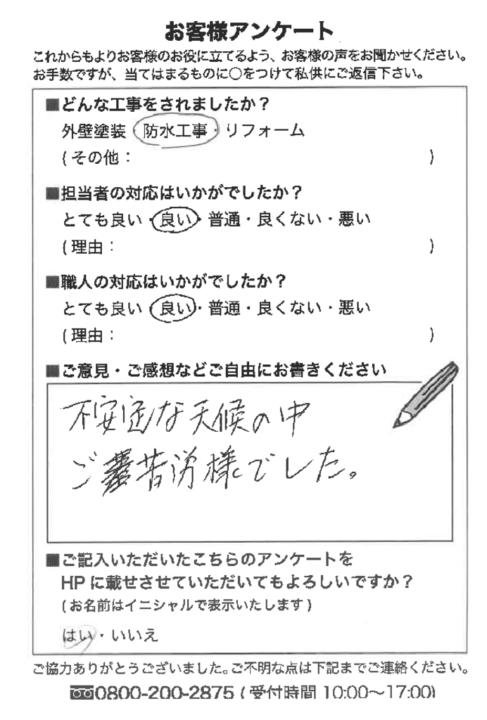 お客様アンケート
これからもよりお客様のお役に立てるよう、お客様の声をお聞かせください。
お手数ですが、当てはまるものに○をつけて私供にご返信下さい。
■どんな工事をされましたか?
外壁塗装・防水工事・リフォーム
(その他: )
■担当者の対応はいかがでしたか?
とても良い・良い・普通・良くない・悪い
(理由: )
■職人の対応はいかがでしたか?
とても良い・良い・普通・良くない・悪い
(理由: )
■ご意見・ご感想などご自由にお書きください
不安定な天候の中
ご苦労様でした。
■ご記入いただいたこちらのアンケートを
HPに載せさせていただいてもよろしいですか?
(お名前はイニシャルで表示いたします)
はい・いいえ
ご協力ありがとうございました。ご不明な点は下記までご連絡ください。
0800-200-2875(受付時間 10:00〜17:00)